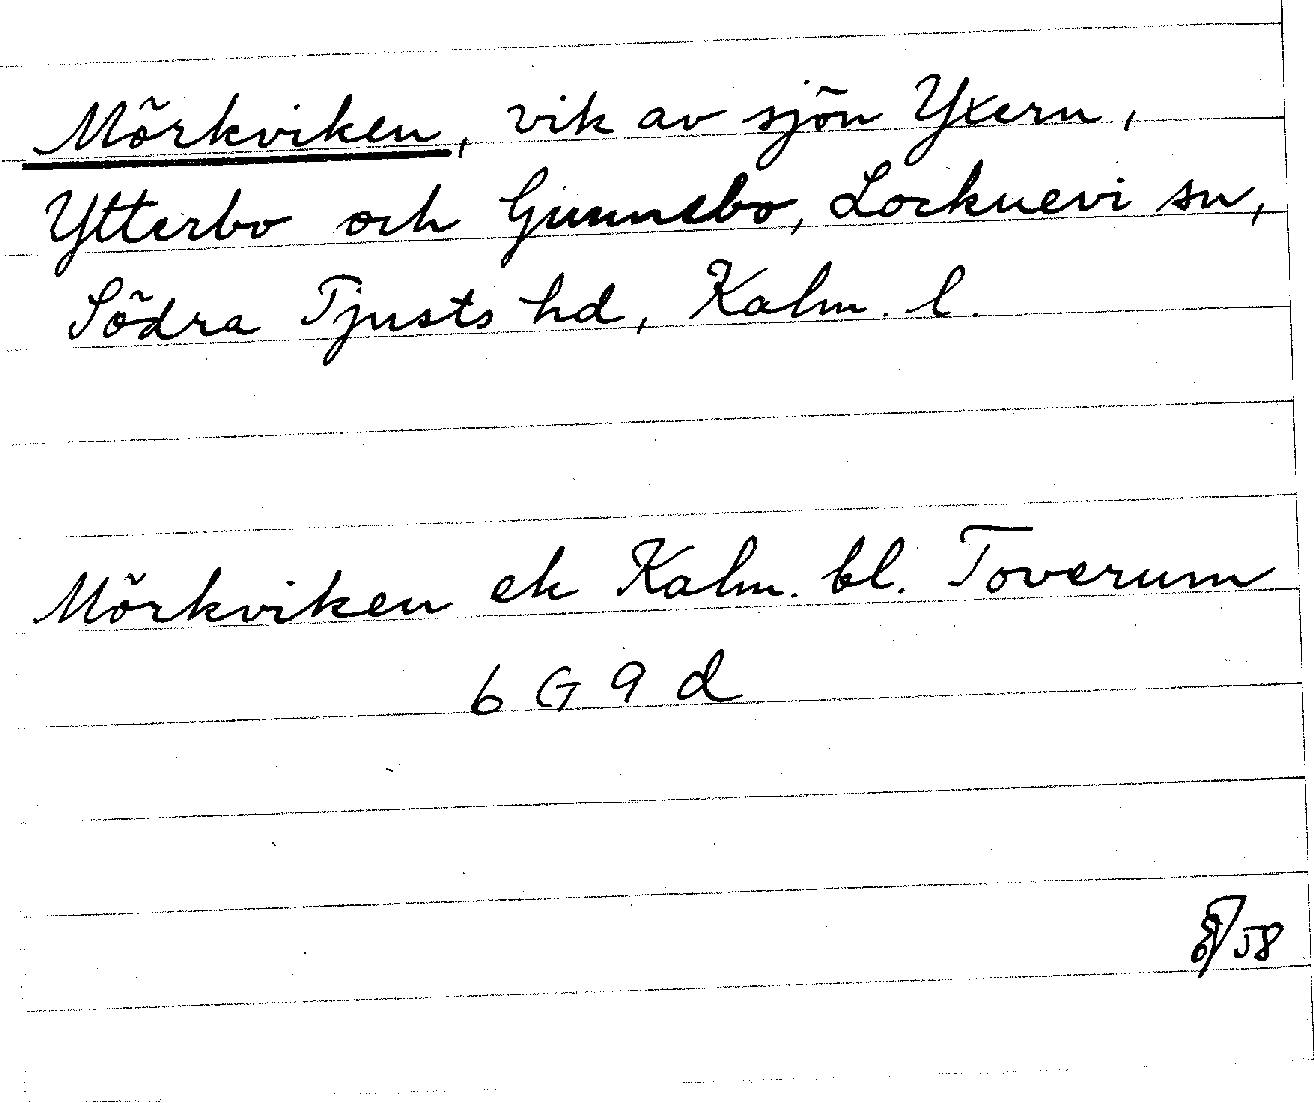 Mörkviken, vik av sjön Yxern,
Ytterbo och Gunnebo, Locknevi sn,
Södra Tjusts hd, Kalm. l.
Mörkviken ek Kalm. bl. Toverum
6 G 9 d
58